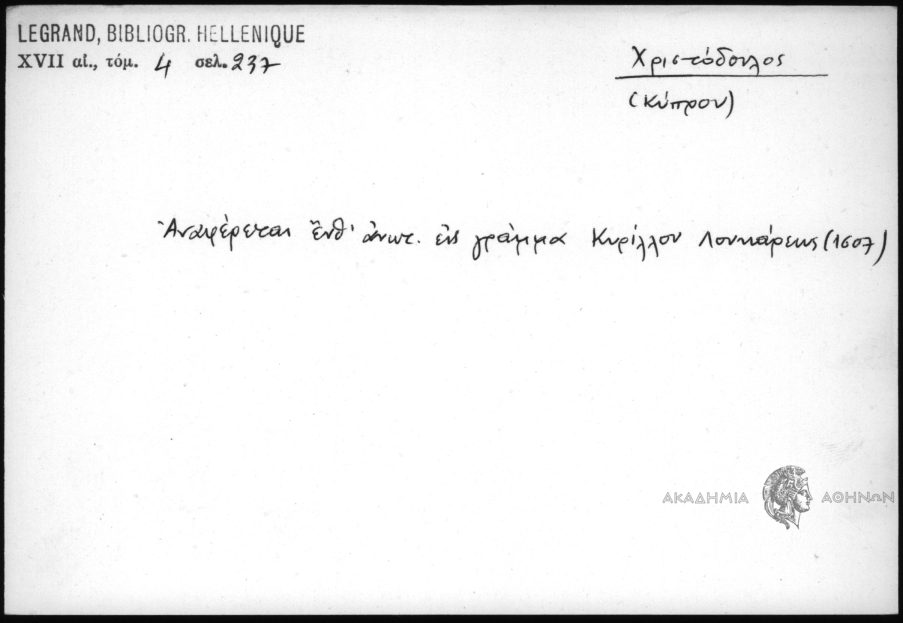 LEGRAND, BIBLIOGR. HELLENIQUE
XVII αἰ., τόμ. 4 σελ. 237
Χριστόδουλος
(Κύπρου)
Ἀναφέρεται ἔνθ' ἀνωτ. εἰς γράμμα Κυρίλλου Λουκάρεως (1607)
ΑΚΑΔΗΜΙΑ ΑΘΗΝΩΝ